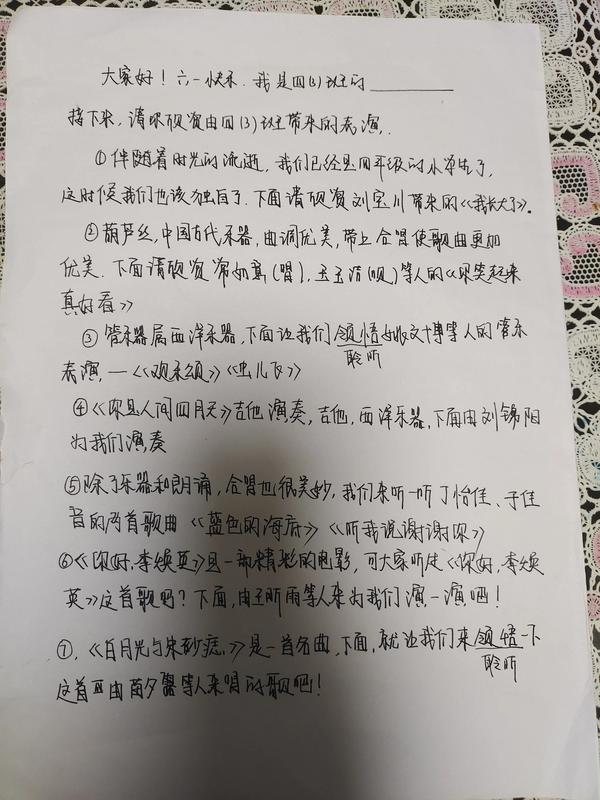 大家好！六一快乐．我是四(3)班的________
接下来，请欣赏由四(3)班带来的表演．
①伴随着时光的流逝，我们已经是四年级的小学生了，
这时候我们也该独自了．下面请欣赏刘宝川带来的《我长大了》．
②葫芦丝，中国古代乐器，曲调优美，带上合唱使歌曲更加
优美．下面请欣赏常如意(唱)，王玉洁(吹)等人的《你笑起来
真好看》
③管乐器属西洋乐器，下面让我们领悟姚文博等人的管乐
聆听
表演，—《欢乐颂》《虫儿飞》
④《你是人间四月天》吉他演奏，吉他，西洋乐器，下面由刘锦阳
为我们演奏
⑤除了乐器和朗诵，合唱也很美妙，我们来听一听丁怡佳、于佳
音的两首歌曲《蓝色的海底》《听我说谢谢你》
⑥《你好，李焕英》是一部精彩的电影，可大家听过《你好，李焕
英》这首歌吗？下面，由王昕雨等人来为我们演一演吧！
⑦，《白月光与朱砂痣》是一首名曲，下面，就让我们来领悟一下
聆听
这首由苗夕馨等人来唱的歌吧！